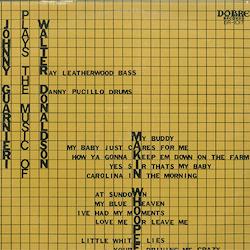 DOBRE
RECORDS
JOHNNY GUARNIERI
PLAYS THE MUSIC OF
WALTER DONALDSON
RAY LEATHERWOOD BASS
DANNY PUCILLO DRUMS
MAKIN WHOOPEE
MY BUDDY
MY BABY JUST CARES FOR ME
HOW YA GONNA KEEP EM DOWN ON THE FARM
YES SIR THATS MY BABY
CAROLINA IN THE MORNING
AT SUNDOWN
MY BLUE HEAVEN
IVE HAD MY MOMENTS
LOVE ME OR LEAVE ME
LITTLE WHITE LIES
YOURE DRIVING ME CRAZY